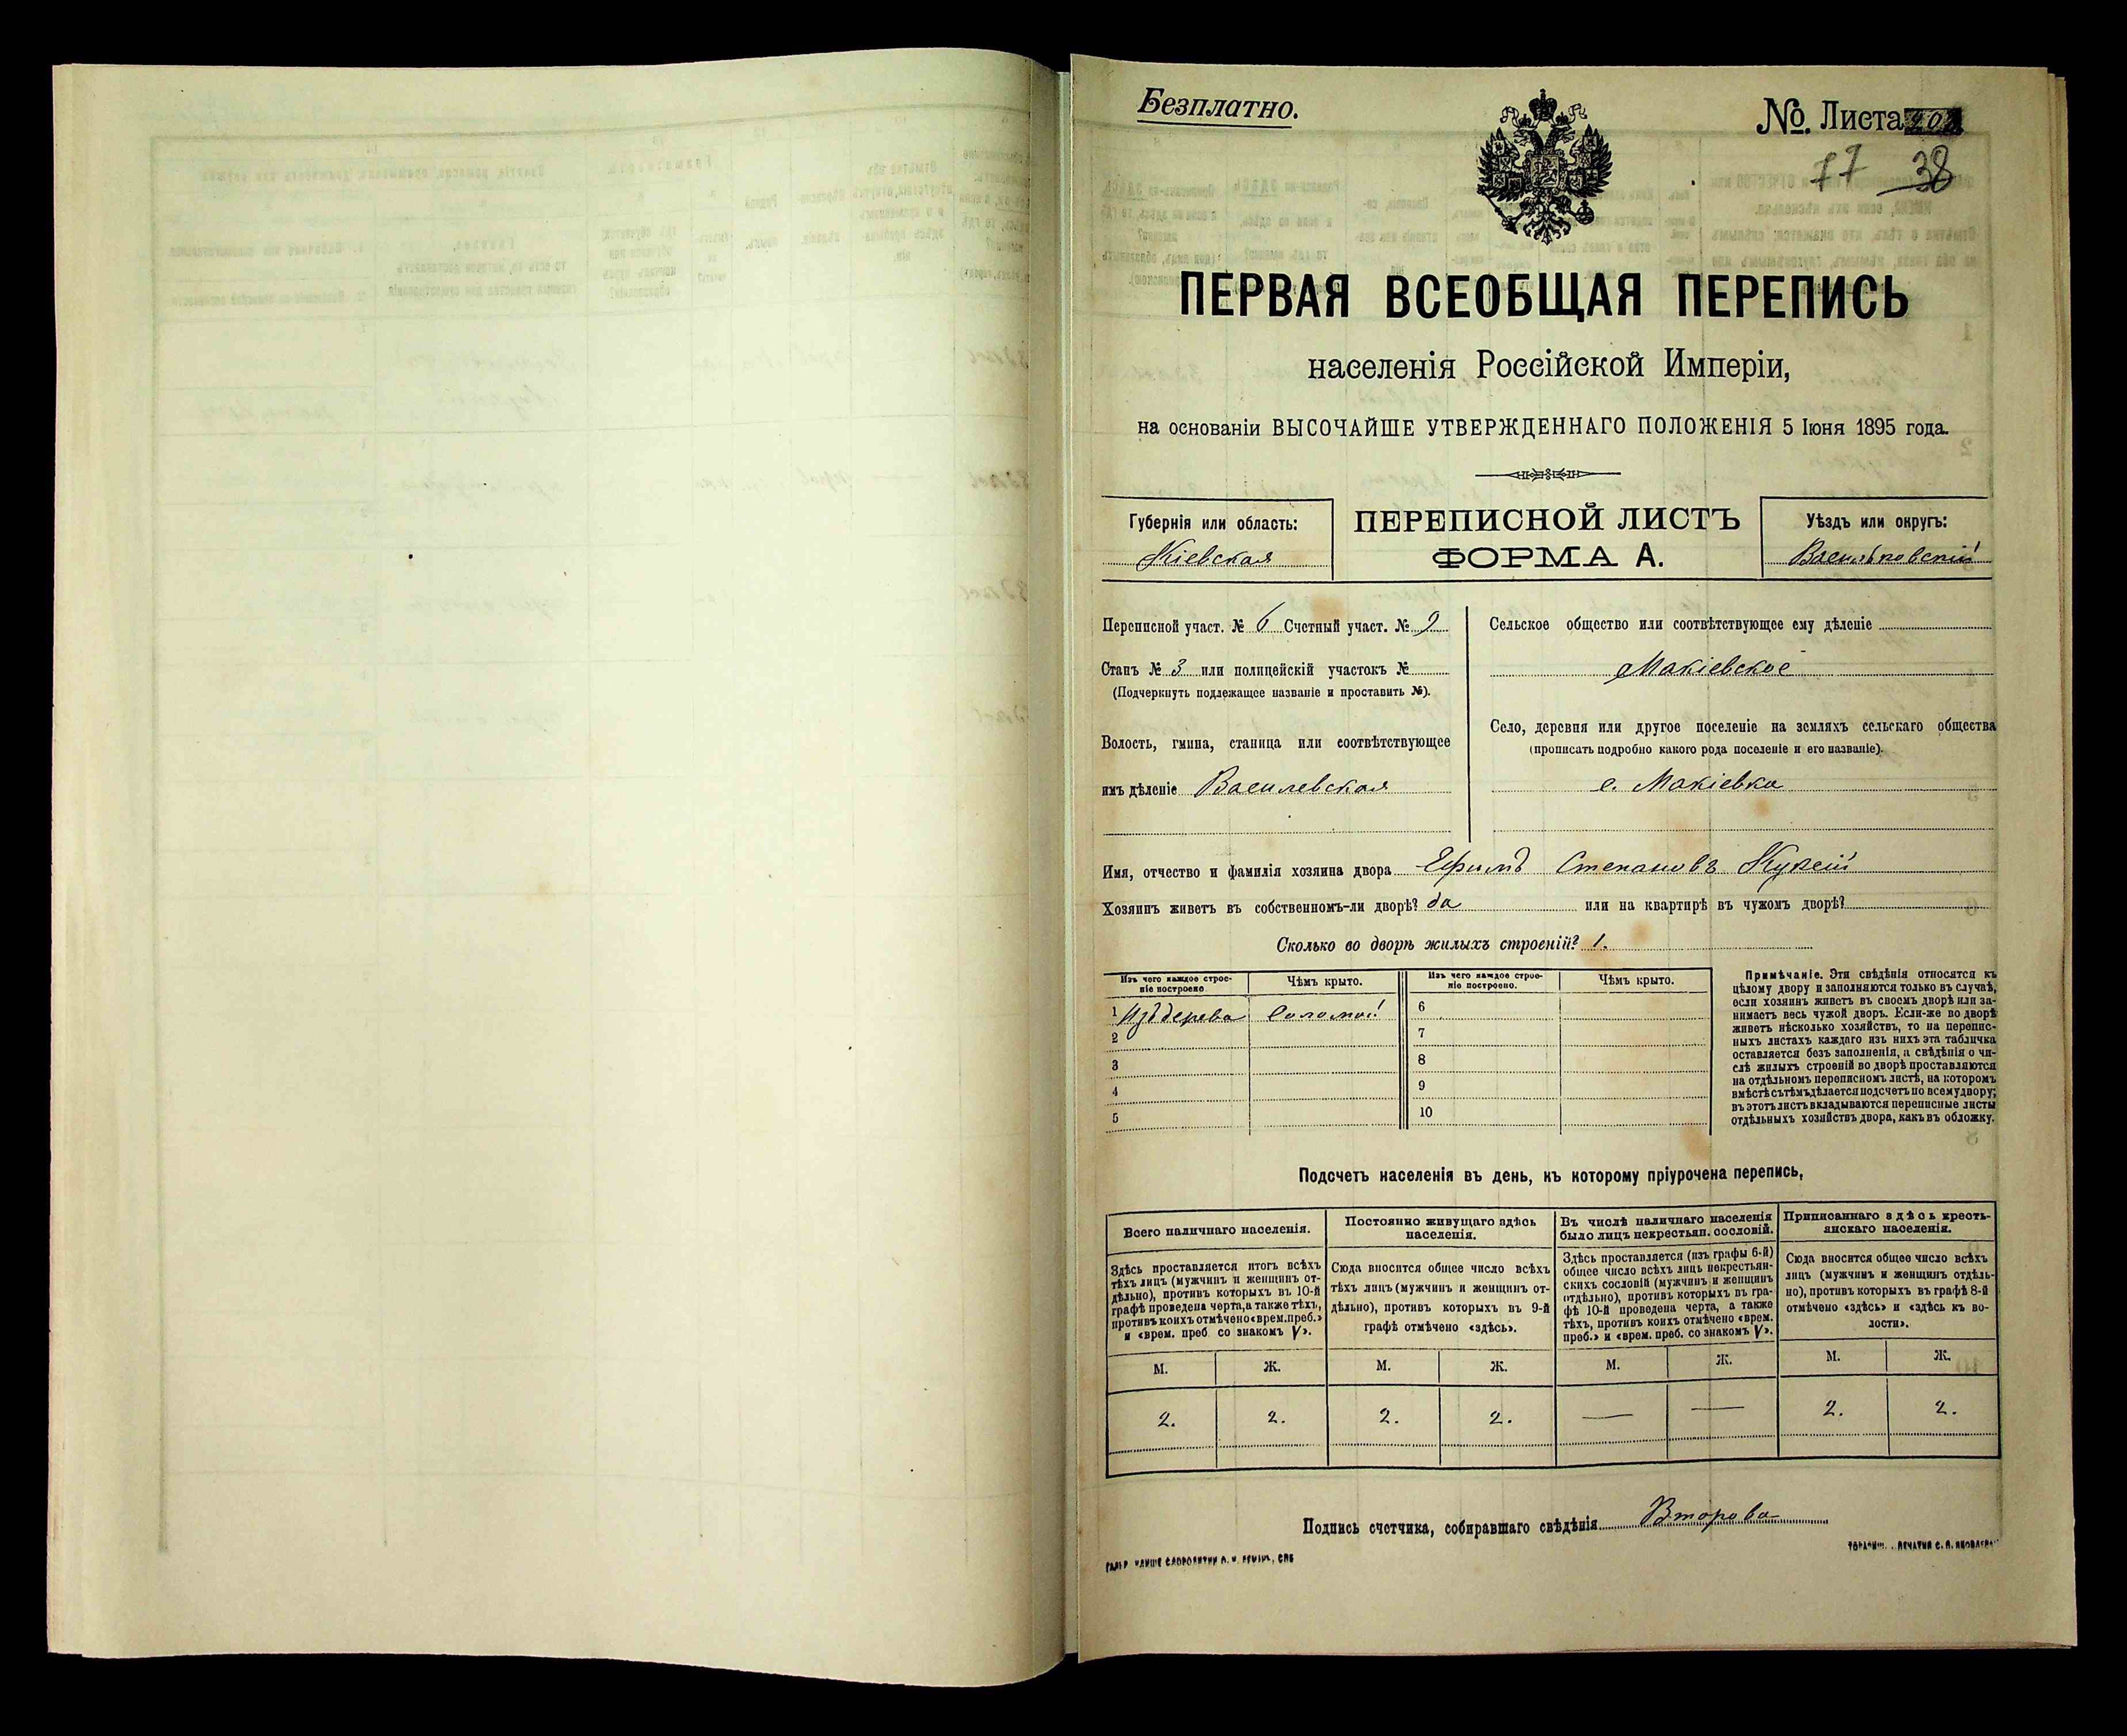 Безплатно.
№. Листа 202
77 38
ПЕРВАЯ ВСЕОБЩАЯ ПЕРЕПИСЬ
населенія Россійской Имперіи,
на основаніи ВЫСОЧАЙШЕ УТВЕРЖДЕННАГО ПОЛОЖЕНІЯ 5 Іюня 1895 года.
Губернія или область:
Кіевская
ПЕРЕПИСНОЙ ЛИСТЪ
ФОРМА А.
Уѣздъ или округъ:
Васильковскій
Переписной участ. № 6 Счетный участ. № 9
Станъ № 3 или полицейскій участокъ №
(Подчеркнуть подлежащее названіе и проставить №).
Волость, гмина, станица или соотвѣтствующее
имъ дѣленіе Василевская
Сельское общество или соотвѣтствующее ему дѣленіе
Макіевское
Село, деревня или другое поселеніе на земляхъ сельскаго общества
(прописать подробно какого рода поселеніе и его названіе).
с. Макіевка
Имя, отчество и фамилія хозяина двора Ефимъ Степановъ Кулей
Хозяинъ живетъ въ собственномъ-ли дворѣ? да или на квартирѣ въ чужомъ дворѣ?
Сколько во дворѣ жилыхъ строеній? 1.
Изъ чего каждое строе-
ніе построено
Чѣмъ крыто.
Изъ чего каждое строе-
ніе построено.
Чѣмъ крыто.
1 Изъ дерева Соломой 6
2 7
3 8
4 9
5 10
Примѣчаніе. Эти свѣдѣнія относятся къ
цѣлому двору и заполняются только въ случаѣ,
если хозяинъ живетъ въ своемъ дворѣ или за-
нимаетъ весь чужой дворъ. Если-же во дворѣ
живетъ нѣсколько хозяйствъ, то на перепис-
ныхъ листахъ каждаго изъ нихъ эта табличка
оставляется безъ заполненія, а свѣдѣнія о чи-
слѣ жилыхъ строеній во дворѣ проставляются
на отдѣльномъ переписномъ листѣ, на которомъ
вмѣстѣ съ тѣмъ дѣлается подсчетъ по всему двору;
въ этотъ листъ вкладываются переписные листы
отдѣльныхъ хозяйствъ двора, какъ въ обложку.
Подсчетъ населенія въ день, къ которому пріурочена перепись,
Всего наличнаго населенія.
Здѣсь проставляется итогъ всѣхъ
тѣхъ лицъ (мужчинъ и женщинъ от-
дѣльно), противъ которыхъ въ 10-й
графѣ проведена черта, а также тѣхъ,
противъ коихъ отмѣчено «врем. преб.»
и «врем. преб со знакомъ V».
Постоянно живущаго здѣсь
населенія.
Сюда вносится общее число всѣхъ
тѣхъ лицъ (мужчинъ и женщинъ от-
дѣльно), противъ которыхъ въ 9-й
графѣ отмѣчено «здѣсь».
Въ числѣ наличнаго населенія
было лицъ некрестьян. сословій.
Здѣсь проставляется (изъ графы 6-й)
общее число всѣхъ лицъ некрестьян-
скихъ сословій (мужчинъ и женщинъ
отдѣльно), противъ которыхъ въ гра-
фѣ 10-й проведена черта, а также
тѣхъ, противъ коихъ отмѣчено «врем.
преб.» и «врем. преб. со знакомъ V».
Приписаннаго здѣсь кресть-
янскаго населенія.
Сюда вносится общее число всѣхъ
лицъ (мужчинъ и женщинъ отдѣль-
но), противъ которыхъ въ графѣ 8-й
отмѣчено «здѣсь» и «здѣсь къ во-
лости».
М. Ж. М. Ж. М. Ж. М. Ж.
2. 2. 2. 2. — — 2. 2.
Подпись счетчика, собиравшаго свѣдѣнія Второва